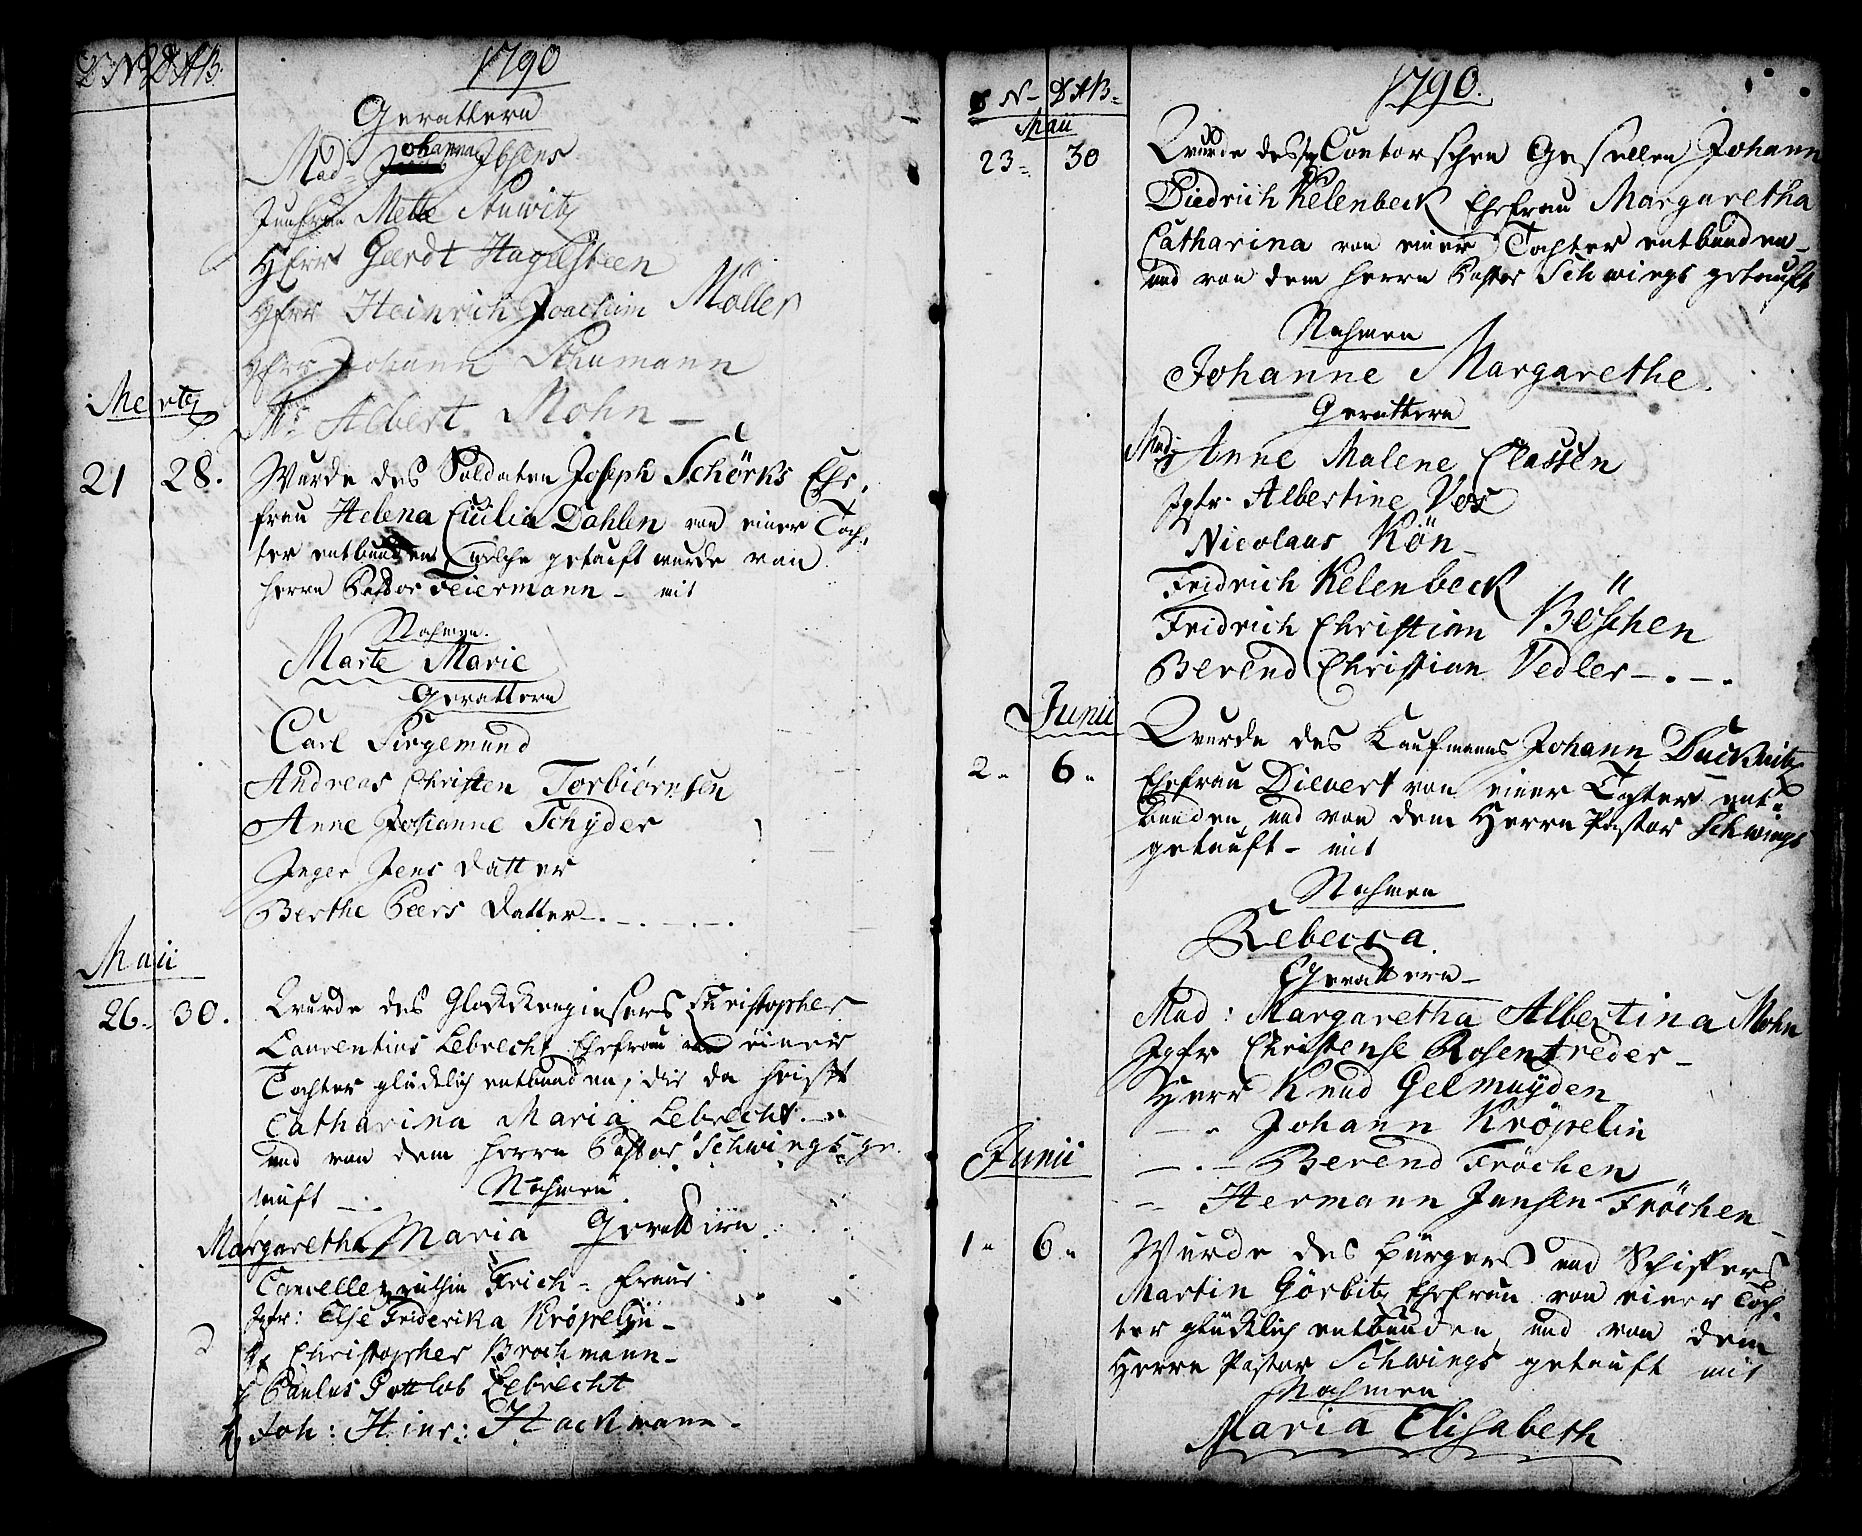 D N D A B.
1790
Gevattern
Mad: Johanna Ibsens
Junfrau Mette
Herr Geerdt Hagelsteen
Herr Heinrich Joachim Möller
Herr Johann Schumann
Mr Albert Mohn –
Mertz
21 28. Wurde des Soldaten Joseph Schörks Ehe,
frau Helena Cicilia Dahlen von einer Toch,
ter entbunden welche getauft wurde von
Herrn Pastor Feiermann – mit
Nahmen.
Marte Marie
Gevattern
Carl Siegemund
Andreas Christen Torbiörnsen
Anne Johanne Schyder
Inger Jens datter
Berthe Peers datter – . – . –
Maii
26. 30. Wurde des Glockkengiesers Christopher
Laurentius Lebrecht Ehefrau von einer
Tochter glücklich entbunden, die da heist
Catharina Maria Lebrecht. –
und von dem Herrn Pastor Schwings ge-
tauft – . Nahmen
Margaretha Maria Gevattern
Frich – Fraue
Jgfr: Else Friderika Kröpelin –
H Christopher Brochmann –
H Paulus Gottlob Lebrecht
H Joh: Hinr: Hackmann –
1790.
N – D A B =
Maii
23 = 30 Wurde des Contorschen Gesellen Johann
Diedrich Kelenbeck Ehefrau Margaretha
Catharina von einer Tochter entbunden
und von dem Herrn Pastor Schwings getauft
Nahmen
Johanne Margarethe.
Gevattern
Mad: Anne Malene Classen
Jgfr. Albertine Vos
Nicolaus Kön –
Fridrich Kelenbeck
Fridrich Christian Böschen
Berend Christian Vedler – . – .
Junii
2 = 6 = Wurde des Kaufmanns Johann Duckwitz
Ehefrau Dievert von einer Tochter ent=
bunden, und von dem Herrn Pastor Schwings
getauft – mit
Nahmen
Rebecca.
Gevattern –
Mad: Margaretha Albertina Mohn
Jgfr Christense Rosentreder –
Herr Knud Gelmuyden
– . Johann Kröpelin
– . – Berend Fröchen
– Hermann Jansen Fröchen –
Junii
1 = 6 = Wurde des bürgers und Schiffers
Martin Görbitz Ehefrau von einer Toch,
ter glücklich entbunden, und von dem
Herrn Pastor Schwings getauft mit
Nahmen
Maria Elisabeth